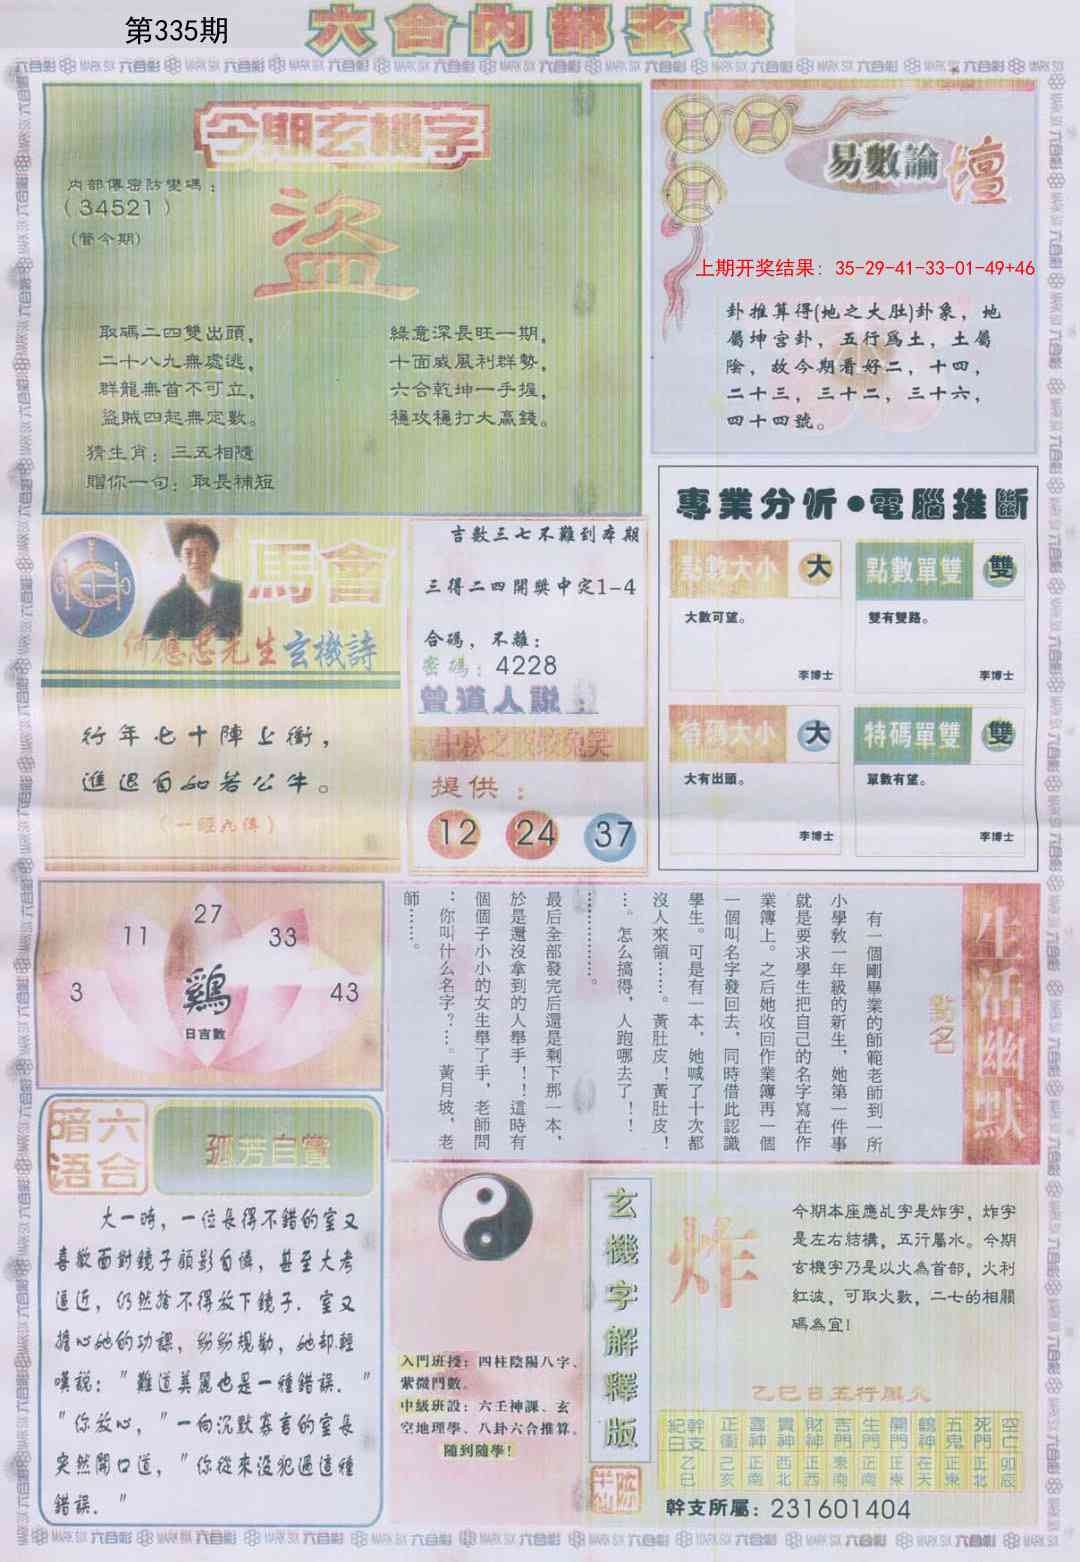 第335期
六合內部玄機
今期玄機字
內部傳密防變碼：
（34521）
（管今期）
盜
取碼二四雙出頭，
二十八九無處逃，
群龍無首不可立，
盜賊四起無定數。
綠意深長旺一期，
十面威風利群勢，
六合乾坤一手握，
穩攻穩打大贏錢。
猜生肖：三五相隨
贈你一句：取長補短
易數論壇
上期开奖结果：35-29-41-33-01-49+46
卦推算得(地之大肚)卦象，地
屬坤宮卦，五行為土，土屬
陰，故今期看好二，十四，
二十三，三十二，三十六，
四十四號。
專業分析●電腦推斷
點數大小 大
大數可望。
李博士
點數單雙 雙
雙有雙路。
李博士
特碼大小 大
大有出頭。
李博士
特碼單雙 雙
單數有望。
李博士
馬會
何應慈先生玄機詩
行年七十陣上衝，
進退自如若公牛。
（一經九傳）
吉數三七不難到本期
三得二四開獎中定1-4
合碼，不離：
密碼：4228
曾道人説：
提供：
12 24 37
27
11 33
3 43
鷄
日吉數
生活幽默
點名
有一個剛畢業的師範老師到一所
小學教一年級的新生，她第一件事
就是要求學生把自己的名字寫在作
業簿上。之后她收回作業簿再一個
一個叫名字發回去，同時借此認識
學生。可是有一本，她喊了十次都
沒人來領……。黃肚皮！黃肚皮！
…。怎么搞得，人跑哪去了！！
……………。
最后全部發完后還是剩下那一本，
於是還沒拿到的人舉手！！這時有
個個子小小的女生舉了手，老師問
：你叫什么名字？…。黃月坡，老
師……。
六合暗语
孤芳自賞
大一時，一位長得不錯的室友
喜歡面對鏡子顧影自憐，甚至大考
逼近，仍然捨不得放下鏡子．室友
擔心她的功課，紛紛規勸，她却輕
嘆說："難道美麗也是一種錯誤．"
"你放心，"一向沉默寡言的室長
突然開口道，"你從來沒犯過這種
錯誤．"
入門班授：四柱陰陽八字、
紫微門數。
中級班設：六壬神課、玄
空地理學、八卦六合推算。
隨到隨學！
玄機字解釋版
炸
今期本座應乩字是炸字，炸字
是左右結構，五行屬水。今期
玄機字乃是以火為首部，火利
紅波，可取火數，二七的相關
碼為宜!
乙巳日五行屬火
紀日 幹支 正衝 喜神 貴神 財神 吉門 生門 開門 鶴神 五鬼 死門 空亡
乙巳 己亥 正南 西北 正西 東南 正南 正東 在天 正東 正北 卯辰
幹支所屬：231601404